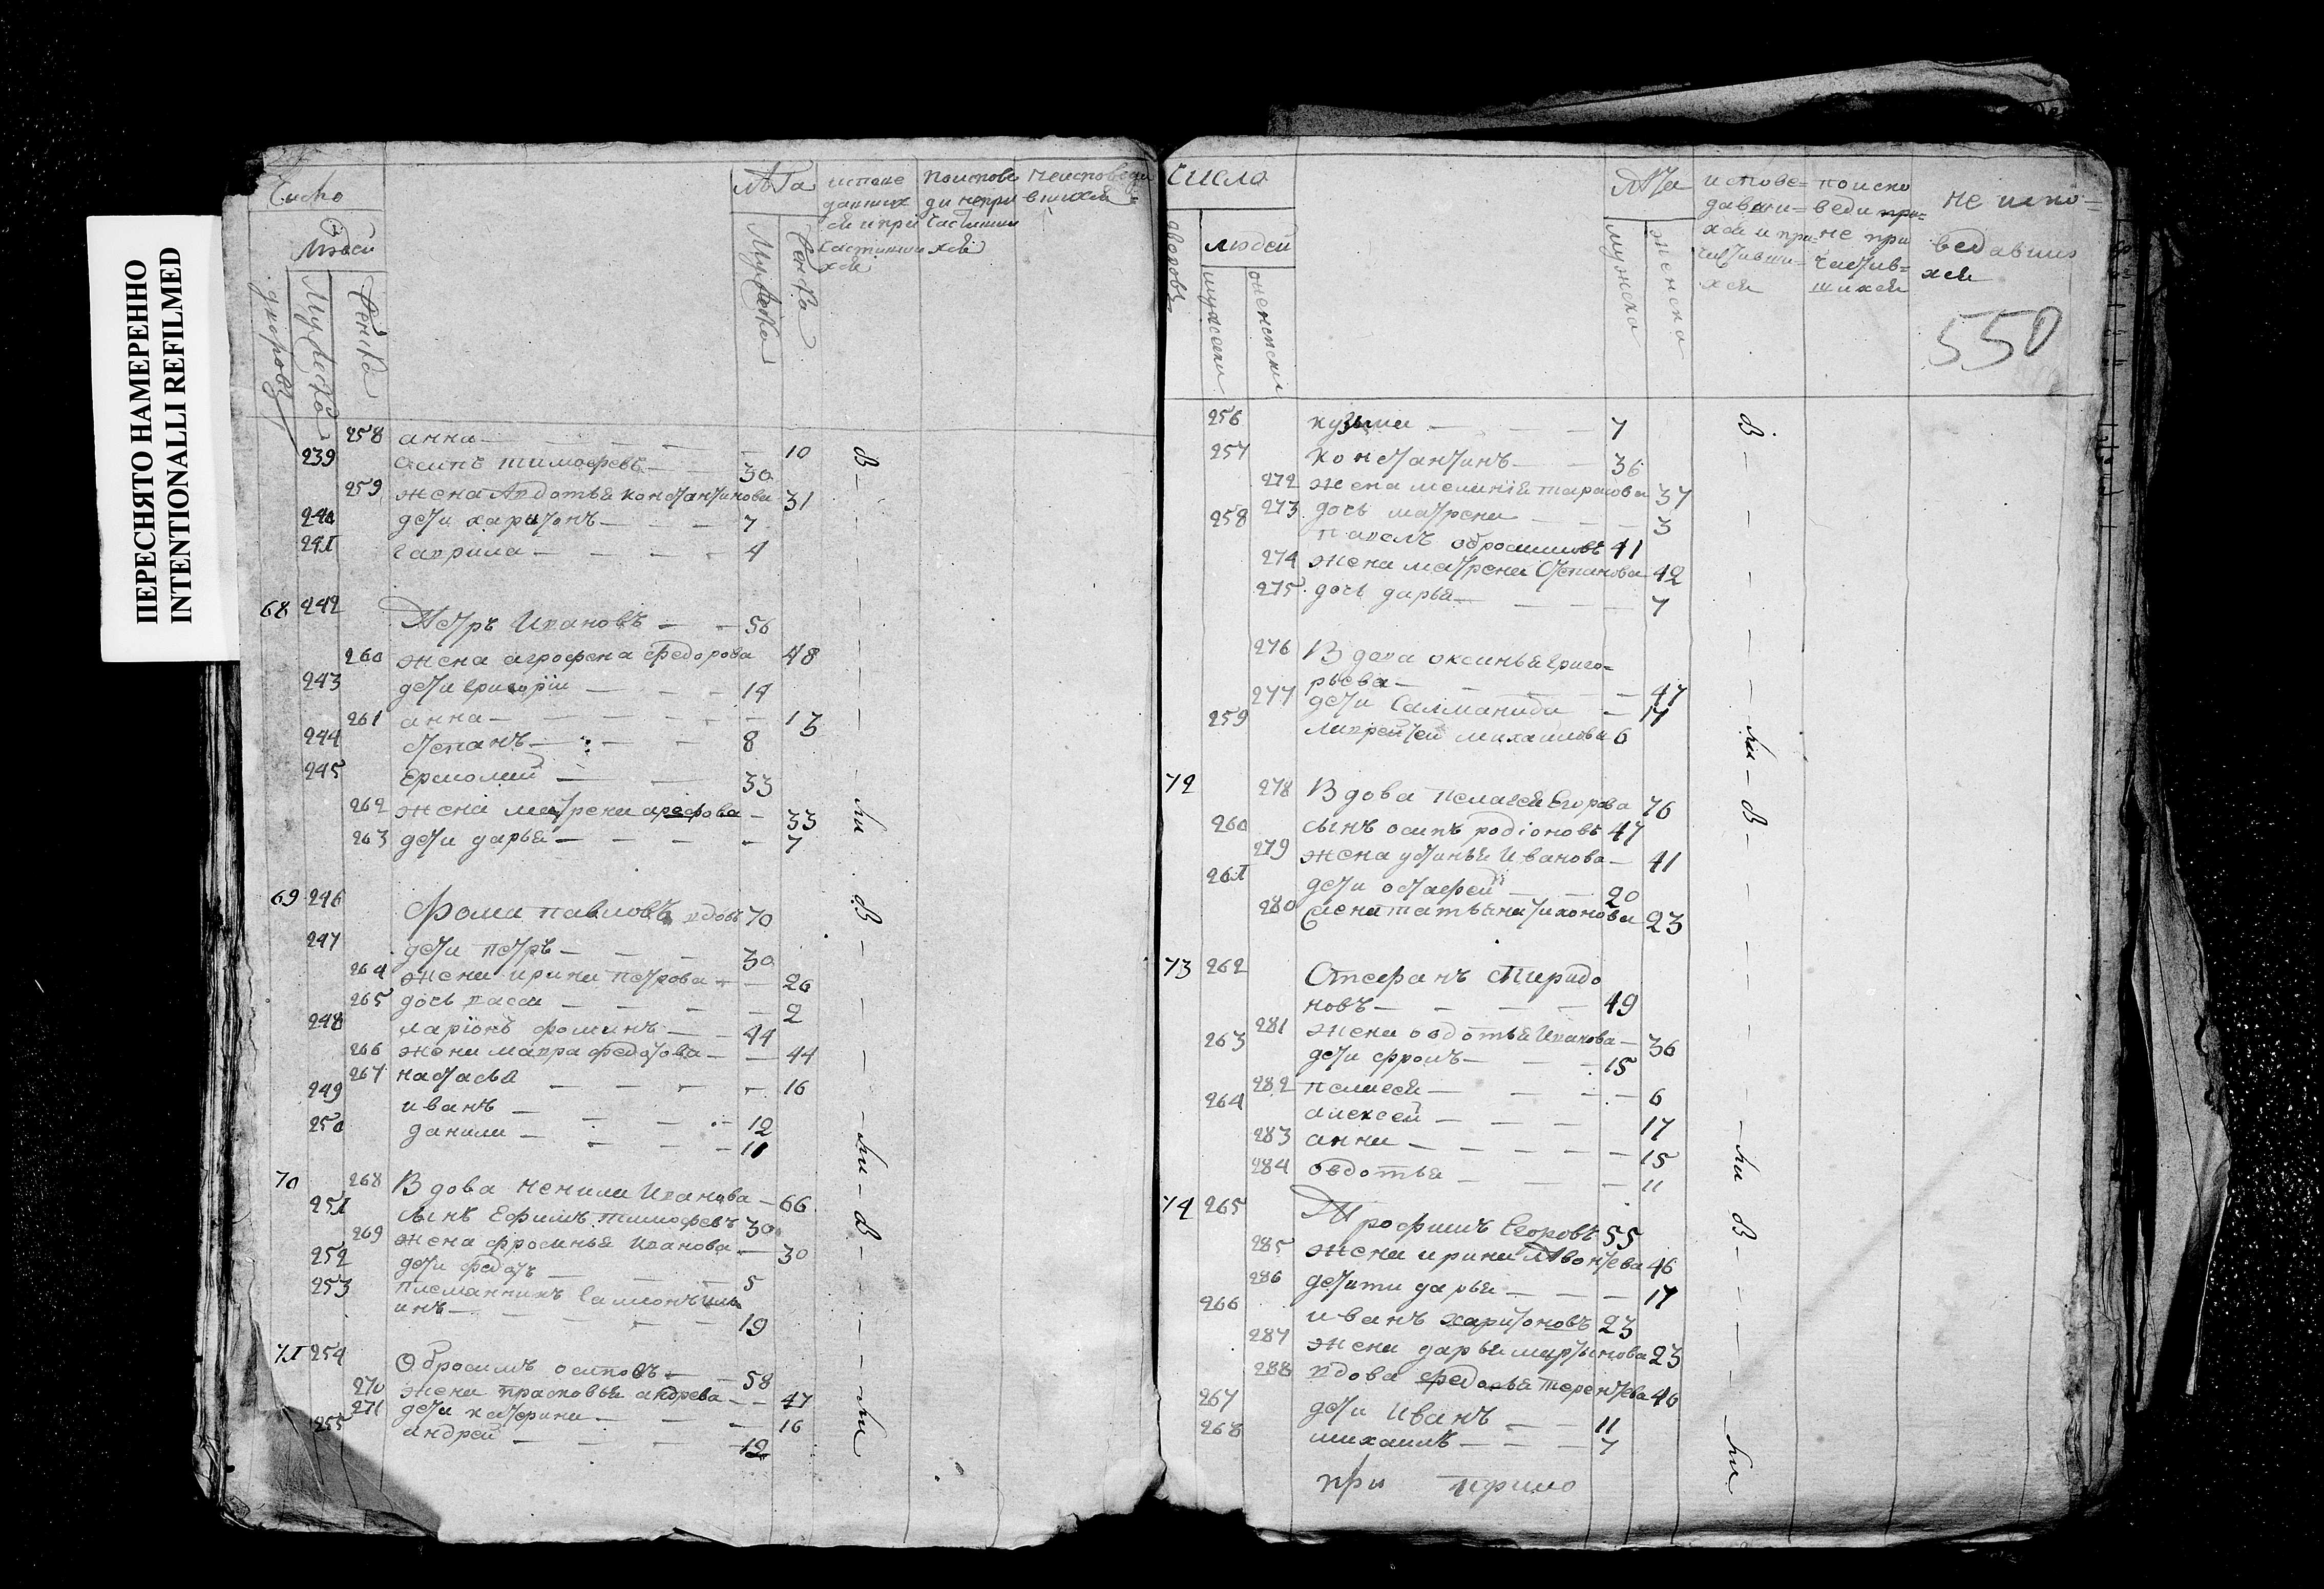 ПЕРЕСНЯТО НАМЕРЕННО
INTENTIONALLI REFILMED
Число
людей
дворовъ
Мужеска
женска
лѣта
Мужеска
женска
258 анна — 10
239 осипъ тимофеевъ — 30
259 жена Авдотья константинова 31
240 дети харитонъ — 7
241 гаврила — 4
68 242 Петръ Ивановъ — 56
260 жена агрофена федорова 48
243 дети григорiи — 14
261 анна — 13
244 степанъ — 8
245 Ермолай — 33
262 жена матрена арефова — 33
263 дети дарья — 7
69 246 Фома павловъ вдовъ 70
247 дети петръ — 30
264 жена ирина петрова — 26
265 дочь васса — 2
248 ларiонъ фоминъ — 44
266 жена мавра федотова — 44
267 настасья — 16
249 иванъ — 12
250 данила — 11
70 268 Вдова ненила Иванова — 66
251 сынъ Ефимъ тимофеевъ 30
269 жена фросинья Иванова — 30
252 дети федотъ — 5
253 писманникъ Самсонъ
инъ — 19
71 254 Обросимъ осиповъ — 58
270 жена прасковья андреева — 47
271 дети катерина — 16
255 андрей — 12
числа
дворовъ
людей
мужески
женски
лѣта
мужеска
женска
не испо=
ведавших
хся
550
256 кузьма — 7
257 константинъ — 36
272 жена меланiя тарасова 37
273 дочь матрена — 3
258 павелъ обросимовъ 41
274 жена матрена Степанова 42
275 дочь дарья — 7
276 Вдова оксинья григо=
рьева — 47
277 дети Салманида — 14
259 лаврентей михаилова 6
72 278 Вдова пелагея Егорова 76
260 сынъ осипъ родiоновъ 47
279 жена устинья Иванова — 41
261 дети остафей — 20
280 жена татьяна тихонова 23
73 262 Стефанъ спиридо
новъ — 49
281 жена овдотья Иванова — 36
263 дети фролъ — 15
282 пелагея — 6
264 алексей — 17
283 анна — 15
284 овдотья — 11
74 265 Трофимъ Егоровъ 55
285 жена ирина Левонтева 46
286 детити дарья — 17
266 иванъ харитоновъ 23
287 жена дарья мартынова 23
288 вдова федосья терентева 46
267 дети Иванъ — 11
268 михаилъ — 7